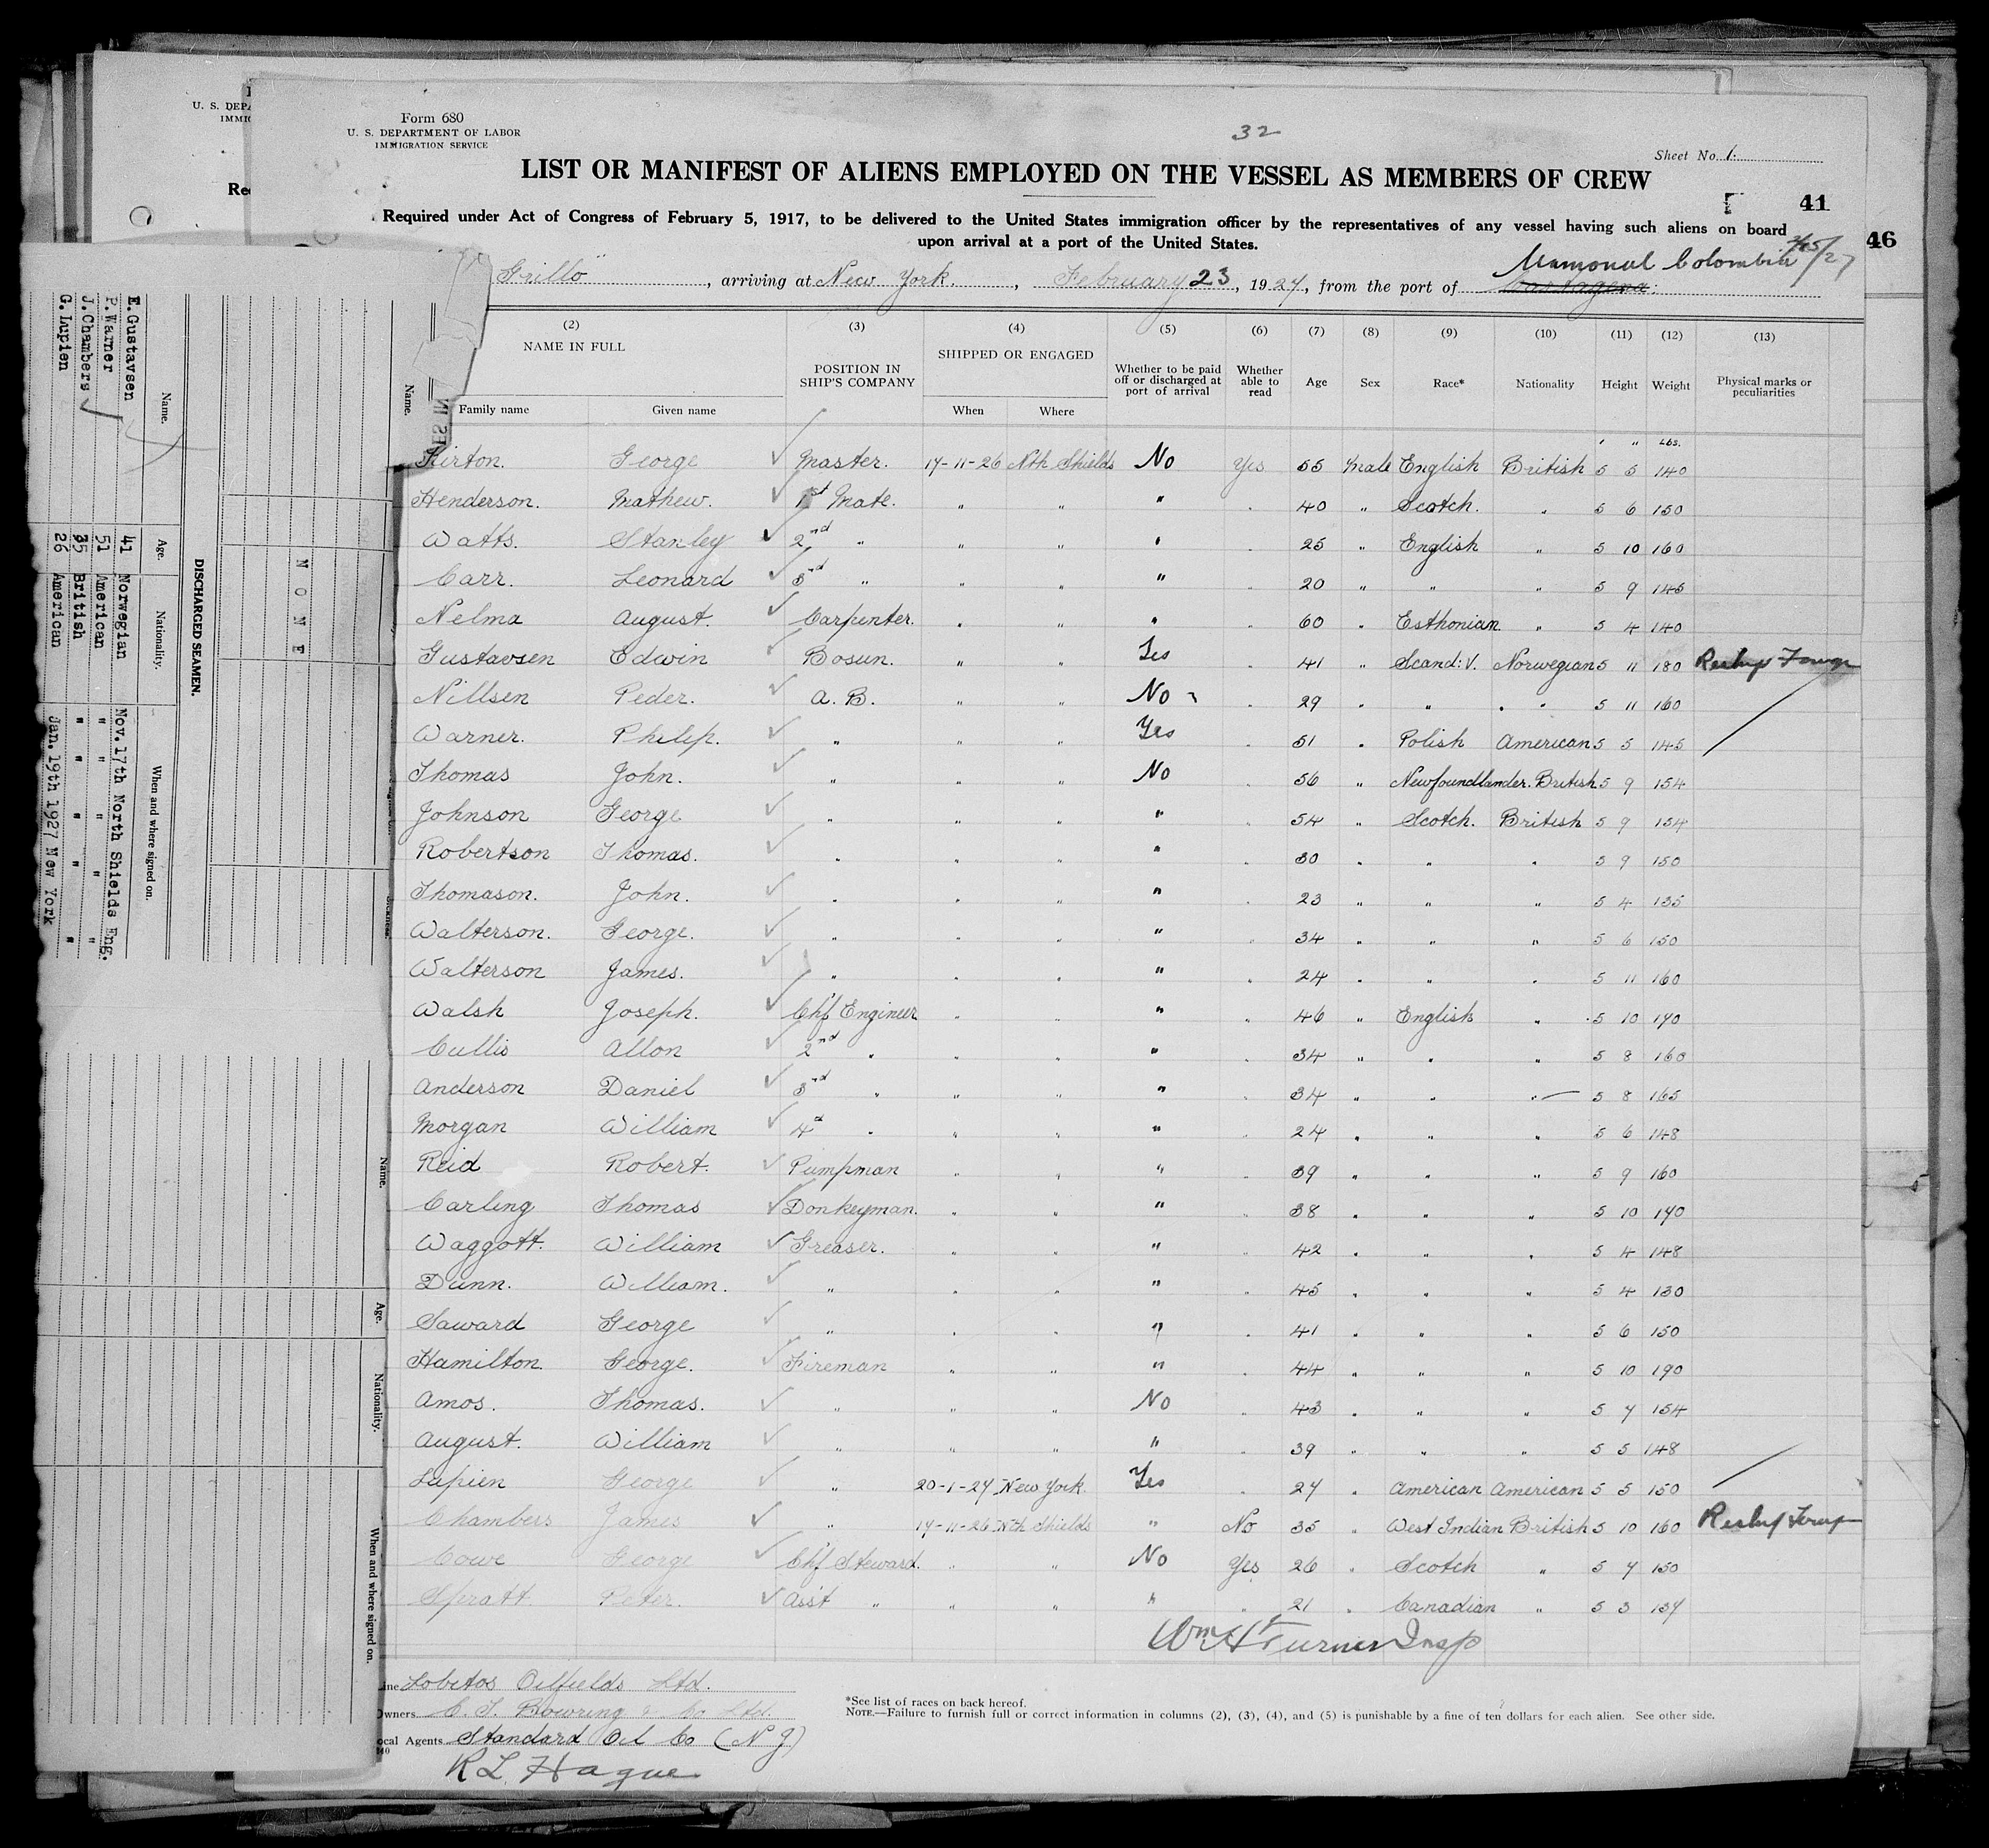 U. S. DEPA
IMMIG
Rec
Form 680
U. S. DEPARTMENT OF LABOR
IMMIGRATION SERVICE
32
Sheet No. 1.
LIST OR MANIFEST OF ALIENS EMPLOYED ON THE VESSEL AS MEMBERS OF CREW
41
46
Required under Act of Congress of February 5, 1917, to be delivered to the United States immigration officer by the representatives of any vessel having such aliens on board
upon arrival at a port of the United States.
Mamonal Colombia
Grillo", arriving at New York., February 23, 1927, from the port of Cartagena.
(2) (3) (4) (5) (6) (7) (8) (9) (10) (11) (12) (13)
NAME IN FULL POSITION IN SHIP'S COMPANY SHIPPED OR ENGAGED Whether to be paid off or discharged at port of arrival Whether able to read Age Sex Race* Nationality Height Weight Physical marks or peculiarities
Family name Given name When Where
' " Lbs.
Kirton. George Master. 17-11-26 Nth Shields No Yes 55 Male English British 5 5 140
Henderson. Mathew. 1st Mate. " " " " 40 " Scotch. " 5 6 150
Watts. Stanley 2nd " " " " " 25 " English " 5 10 160
Carr. Leonard 3rd " " " " " 20 " " " 5 9 145
Nelma August. Carpenter. " " " " 60 " Esthonian " 5 4 140
Gustavsen Edwin Bosun. " " Yes " 41 " Scand:V. Norwegian 5 11 180
Nillsen Peder. A. B. " " No " 29 " " " 5 11 160
Warner. Philip. " " " Yes " 51 " Polish American 5 5 145
Thomas John. " " " No " 56 " Newfoundlander. British 5 9 154
Johnson George " " " " " 54 " Scotch. British 5 9 154
Robertson Thomas. " " " " " 30 " " " 5 9 150
Thomason. John. " " " " " 23 " " " 5 4 135
Walterson. George. " " " " " 34 " " " 5 6 150
Walterson James. " " " " " 24 " " " 5 11 160
Walsh Joseph. Chf Engineer " " " " 46 " English " 5 10 170
Cullis Allon 2nd " " " " " 34 " " " 5 8 160
Anderson Daniel 3rd " " " " " 34 " " " 5 8 165
Morgan William 4th " " " " " 24 " " " 5 6 148
Reid Robert. Pumpman " " " " 39 " " " 5 9 160
Carling Thomas Donkeyman. " " " " 38 " " " 5 10 170
Waggott. William Greaser. " " " " 42 " " " 5 4 148
Dunn. William. " " " " " 45 " " " 5 4 130
Saward George " " " " " 41 " " " 5 6 150
Hamilton George. Fireman " " " " 44 " " " 5 10 190
Amos. Thomas. " " " No " 43 " " " 5 7 154
August. William " " " " " 39 " " " 5 5 148
Lapien George " 20-1-27 New York Yes " 27 " American American 5 5 150
Chambers James " 17-11-26 Nth Shields " No 35 " West Indian British 5 10 160
Cowe George Chf Steward. " " No Yes 26 " Scotch " 5 7 150
Spratt Peter. Ass't " " " " " 21 " Canadian " 5 3 137
Wm H Turner Insp
Line Lobitos Oilfields Ltd.
Owners C. T. Bowring & Co Ltd.
Local Agents Standard Oil Co (N J)
R L Hague
*See list of races on back hereof.
NOTE.—Failure to furnish full or correct information in columns (2), (3), (4), and (5) is punishable by a fine of ten dollars for each alien. See other side.
DISCHARGED SEAMEN.
Name. Age. Nationality. When and where signed on.
E.Gustavsen 41 Norwegian Nov.17th North Shields Eng.
P.Warner 51 American " " "
J.Chambers 35 British " " " "
G.Lupien 26 American Jan.19th 1927 New York
NONE
Name.
Name. Age. Nationality. When and where signed on.